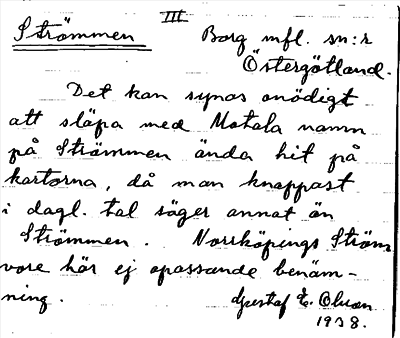 III
Strömmen Borg mfl. sn:r
Östergötland.
Det kan synas onödigt
att släpa med Motala namn
på Strömmen ända hit på
kartorna, då man knappast
i dagl. tal säger annat än
Strömmen. Norrköpings Ström
vore här ej opassande benäm-
ning. Gustaf E. Olsson
1938.